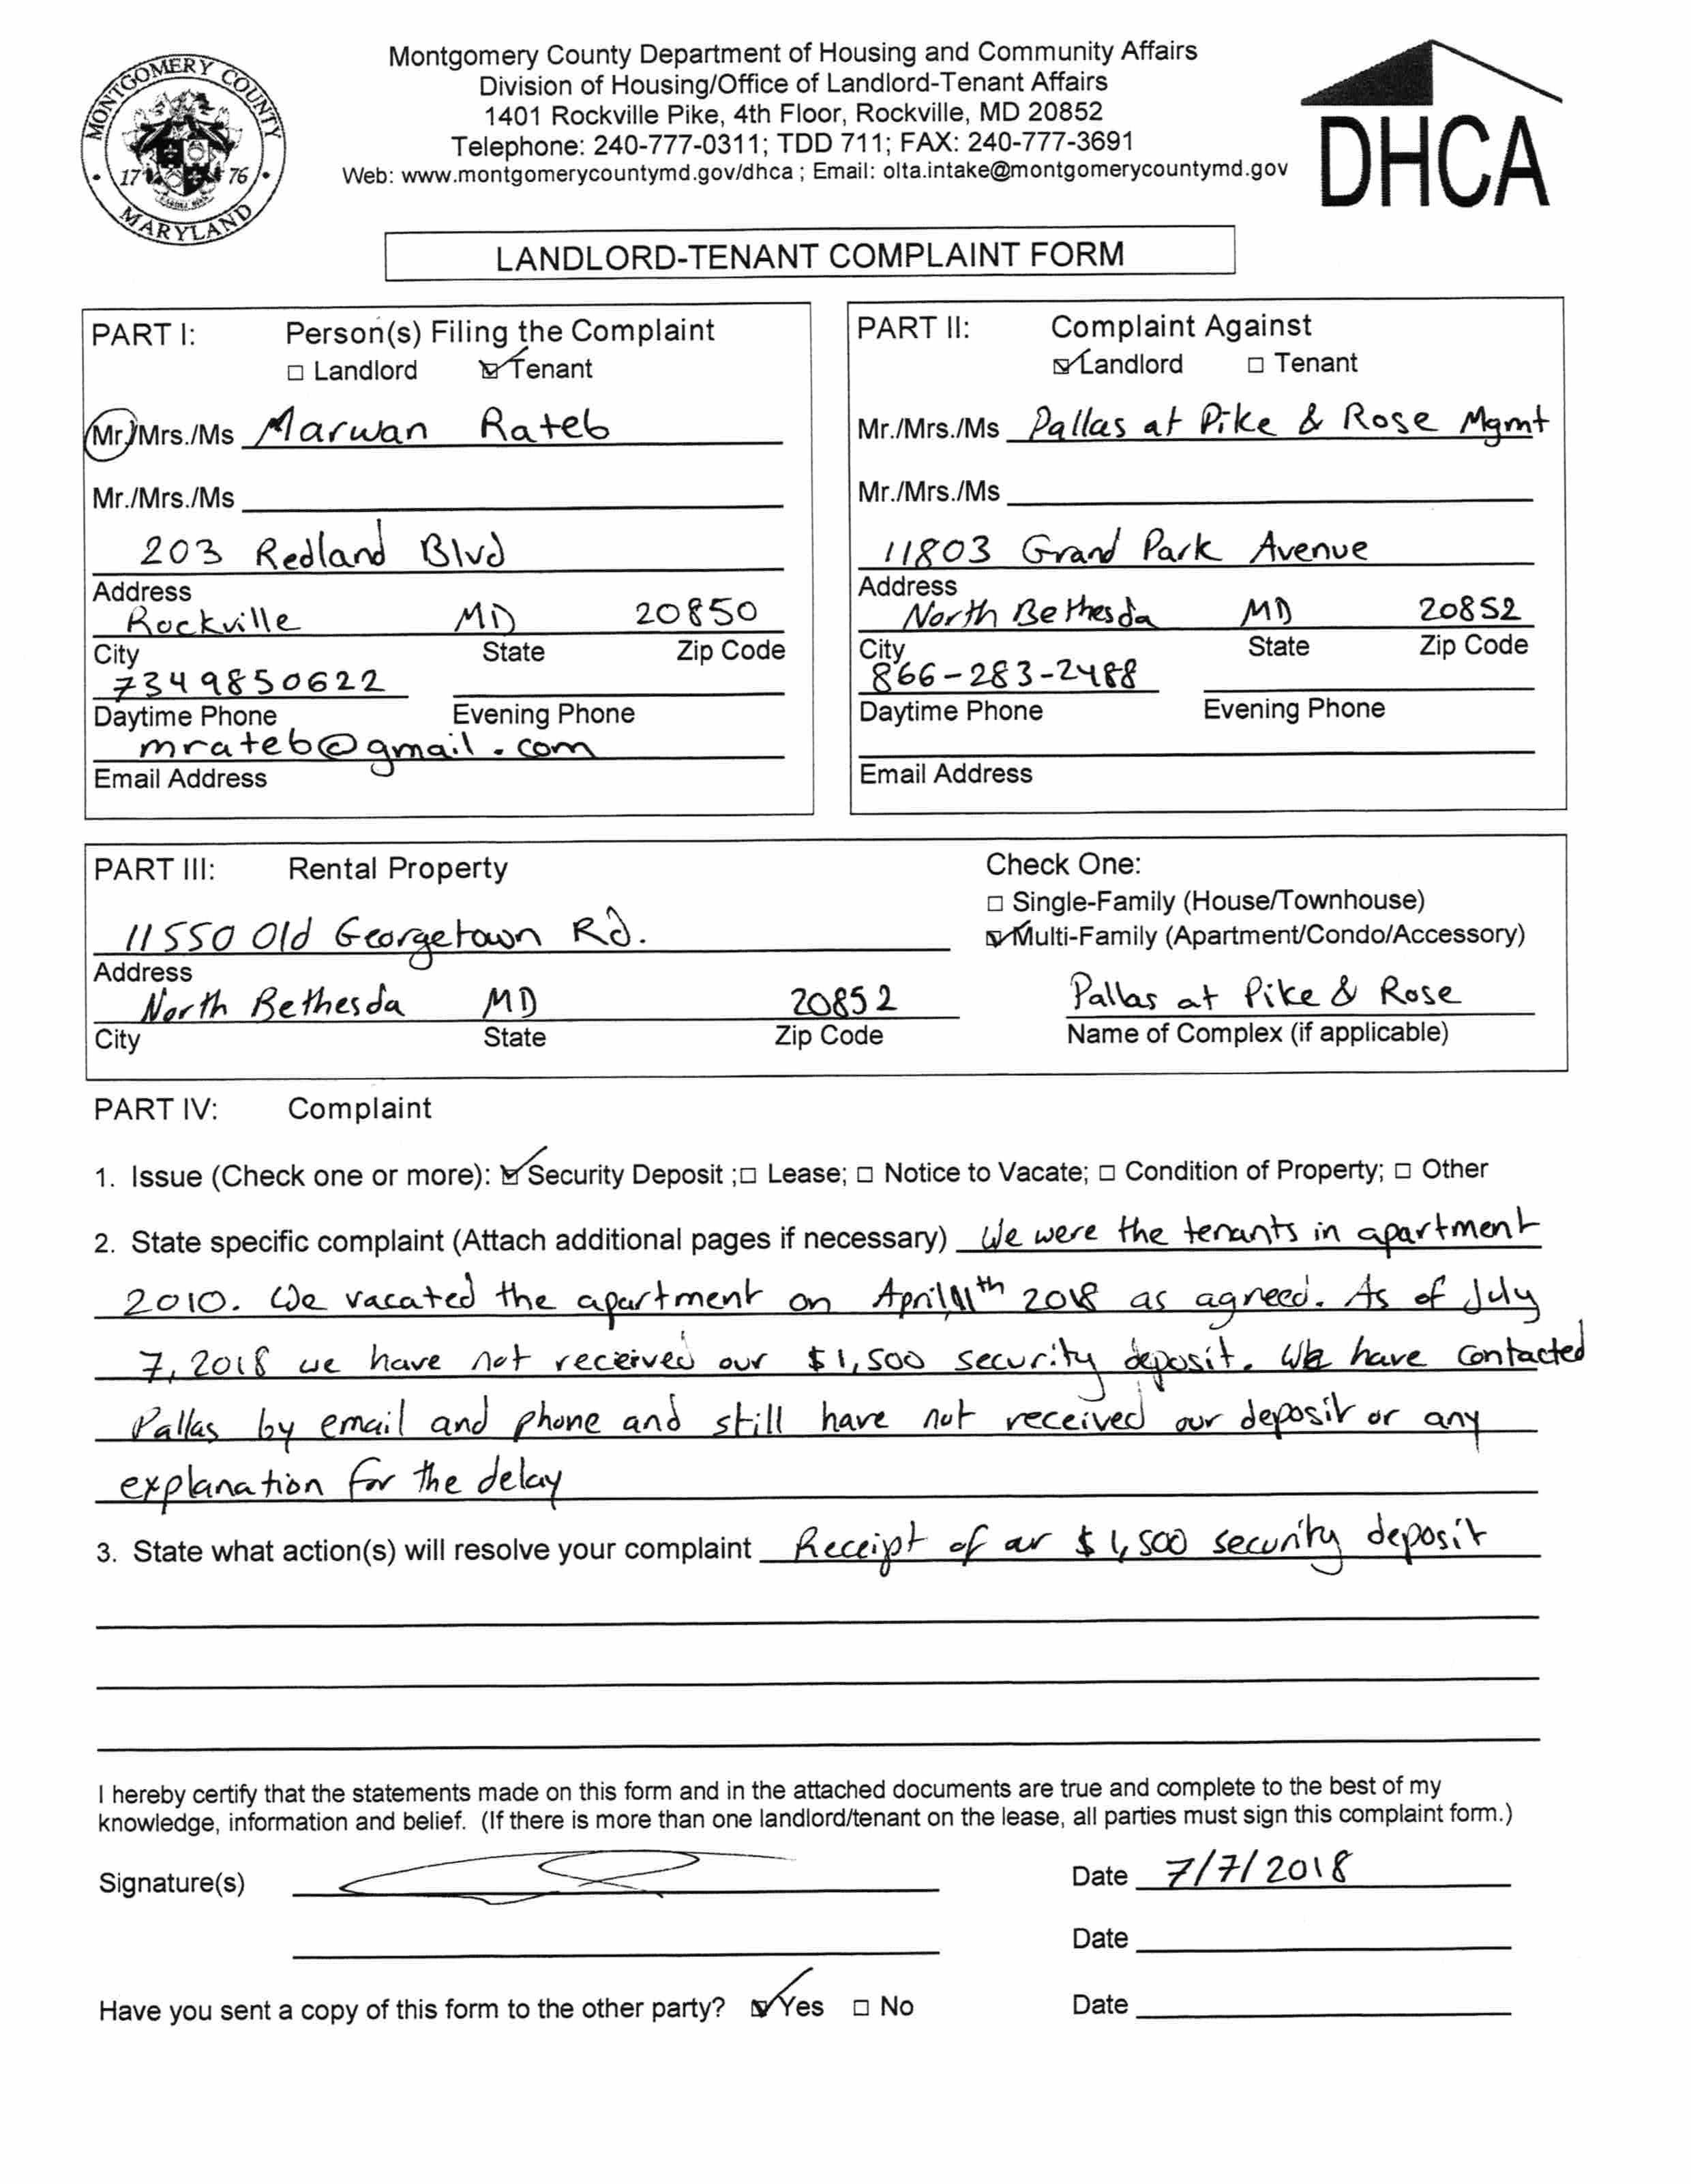 Montgomery County Department of Housing and Community Affairs
Division of Housing/Office of Landlord-Tenant Affairs
1401 Rockville Pike, 4th Floor, Rockville, MD 20852
Telephone: 240-777-0311; TDD 711; FAX: 240-777-3691
Web: www.montgomerycountymd.gov/dhca ; Email: olta.intake@montgomerycountymd.gov
MONTGOMERY COUNTY
1776
MARYLAND
DHCA
LANDLORD-TENANT COMPLAINT FORM
PART I: Person(s) Filing the Complaint
□ Landlord ☑ Tenant
Mr./Mrs./Ms Marwan Rateb
Mr./Mrs./Ms
203 Redland Blvd
Address
Rockville MD 20850
City State Zip Code
7349850622
Daytime Phone Evening Phone
mrateb@gmail.com
Email Address
PART II: Complaint Against
☑ Landlord □ Tenant
Mr./Mrs./Ms Pallas at Pike & Rose Mgmt
Mr./Mrs./Ms
11803 Grand Park Avenue
Address
North Bethesda MD 20852
City State Zip Code
866-283-2488
Daytime Phone Evening Phone
Email Address
PART III: Rental Property
11550 Old Georgetown Rd.
Address
North Bethesda MD 20852
City State Zip Code
Check One:
□ Single-Family (House/Townhouse)
☑ Multi-Family (Apartment/Condo/Accessory)
Pallas at Pike & Rose
Name of Complex (if applicable)
PART IV: Complaint
1. Issue (Check one or more): ☑ Security Deposit ;□ Lease; □ Notice to Vacate; □ Condition of Property; □ Other
2. State specific complaint (Attach additional pages if necessary) We were the tenants in apartment
2010. We vacated the apartment on April 11th 2018 as agreed. As of July
7, 2018 we have not received our $1,500 security deposit. We have contacted
Pallas by email and phone and still have not received our deposit or any
explanation for the delay
3. State what action(s) will resolve your complaint Receipt of our $1,500 security deposit
I hereby certify that the statements made on this form and in the attached documents are true and complete to the best of my
knowledge, information and belief. (If there is more than one landlord/tenant on the lease, all parties must sign this complaint form.)
Signature(s) Date 7/7/2018
Date
Have you sent a copy of this form to the other party? ☑ Yes □ No Date